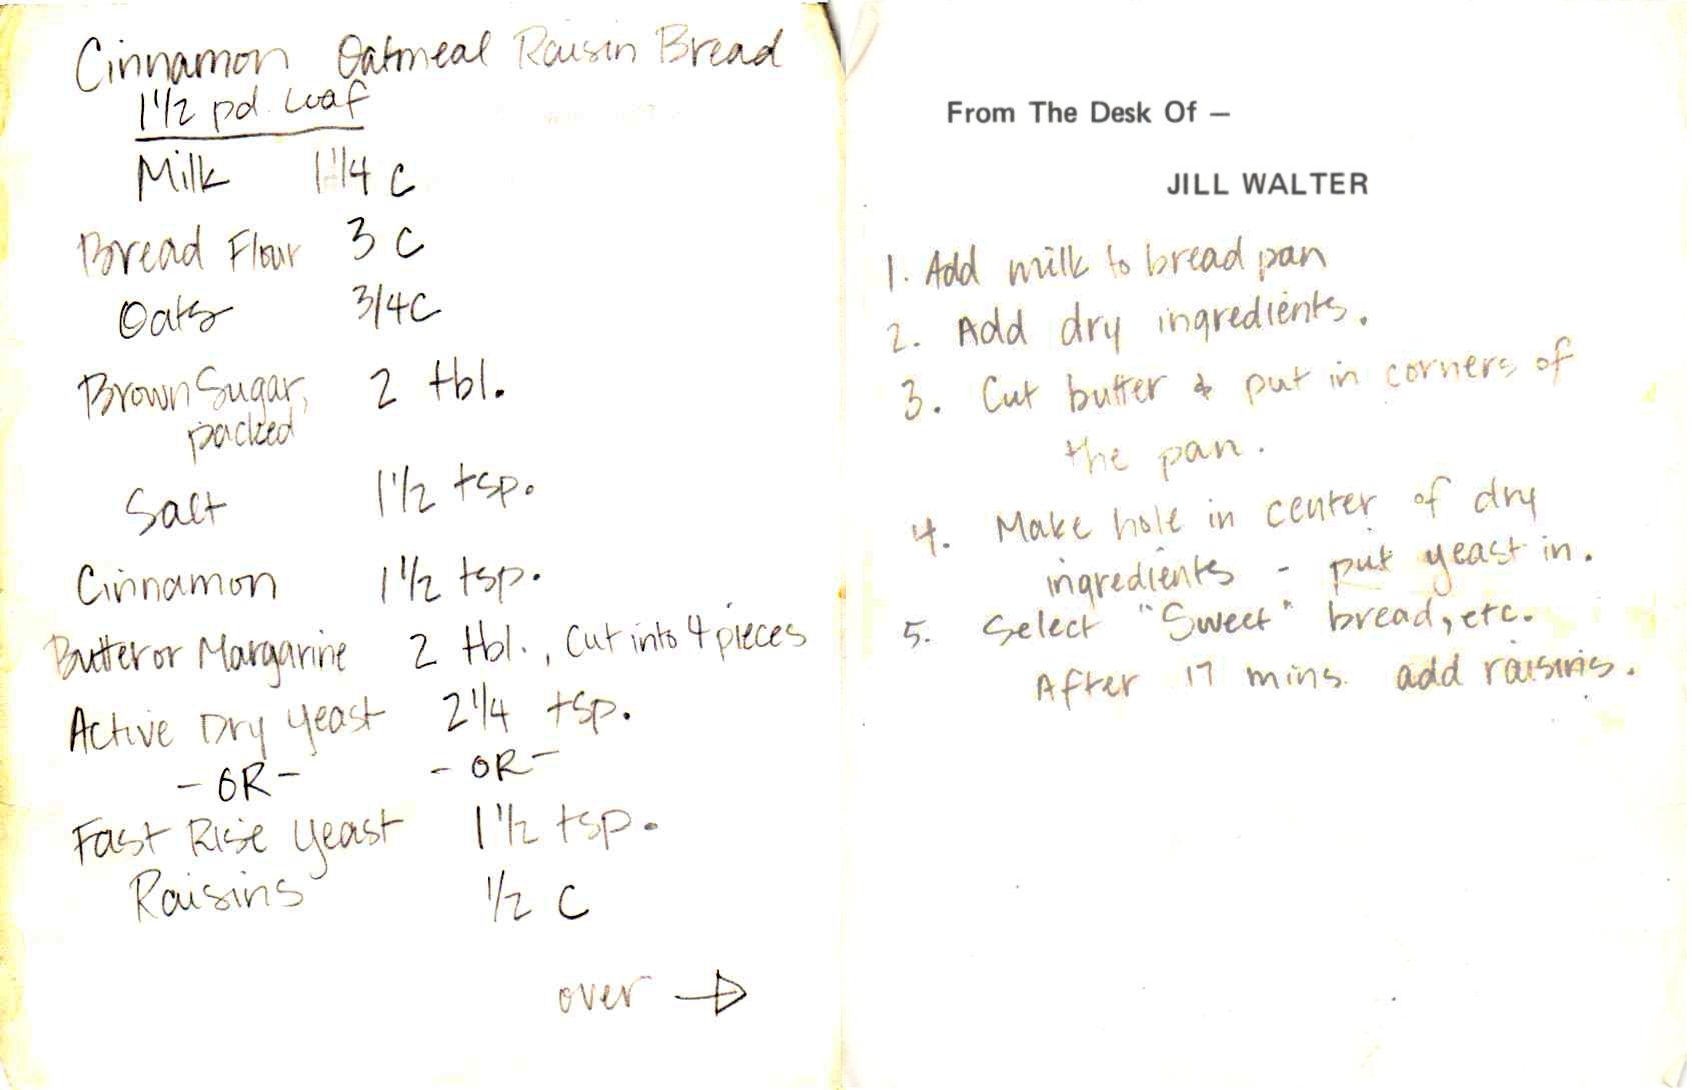 Cinnamon Oatmeal Raisin Bread
1 1/2 pd. Loaf
Milk 1 1/4 c
Bread Flour 3 c
Oats 3/4 c
Brown Sugar, 2 tbl.
packed
Salt 1 1/2 tsp.
Cinnamon 1 1/2 tsp.
Butter or Margarine 2 tbl., Cut into 4 pieces
Active Dry Yeast 2 1/4 tsp.
- OR - - OR -
Fast Rise Yeast 1 1/2 tsp.
Raisins 1/2 C
over →
From The Desk Of —
JILL WALTER
1. Add milk to bread pan
2. Add dry ingredients.
3. Cut butter & put in corners of
the pan.
4. Make hole in center of dry
ingredients - put yeast in.
5. Select "Sweet" bread, etc.
After 17 mins. add raisins.